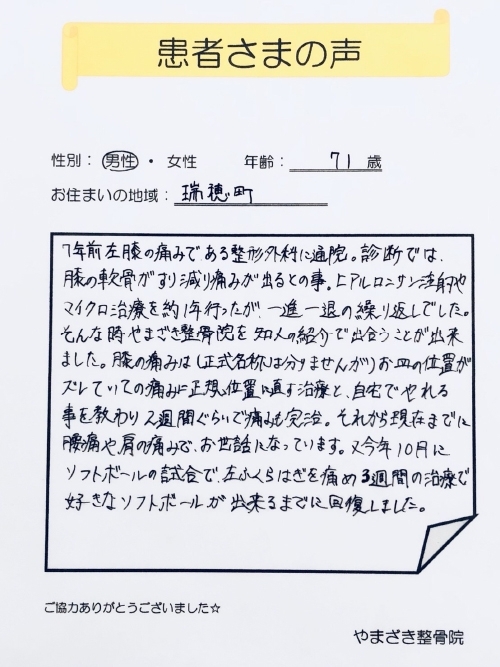 患者さまの声
性別： 男性 ・ 女性　年齢： 71 歳
お住まいの地域： 瑞穂町
7年前左膝の痛みである整形外科に通院。診断では、
膝の軟骨がすり減り痛みが出るとの事。ヒアルロンサン注射や
マイクロ治療を約1年行ったが、一進一退の繰り返しでした。
そんな時やまざき整骨院を知人の紹介で出合うことが出来
ました。膝の痛みは(正式名称は分りませんが)お皿の位置が
ズレていての痛みに正規位置に直す治療と、自宅でやれる
事を教わり2週間ぐらいで痛みも完治。それから現在までに
腰痛や肩の痛みで、お世話になっています。又今年10月に
ソフトボールの試合で、左ふくらはぎを痛め3週間の治療で
好きなソフトボールが出来るまでに回復しました。
ご協力ありがとうございました☆
やまざき整骨院